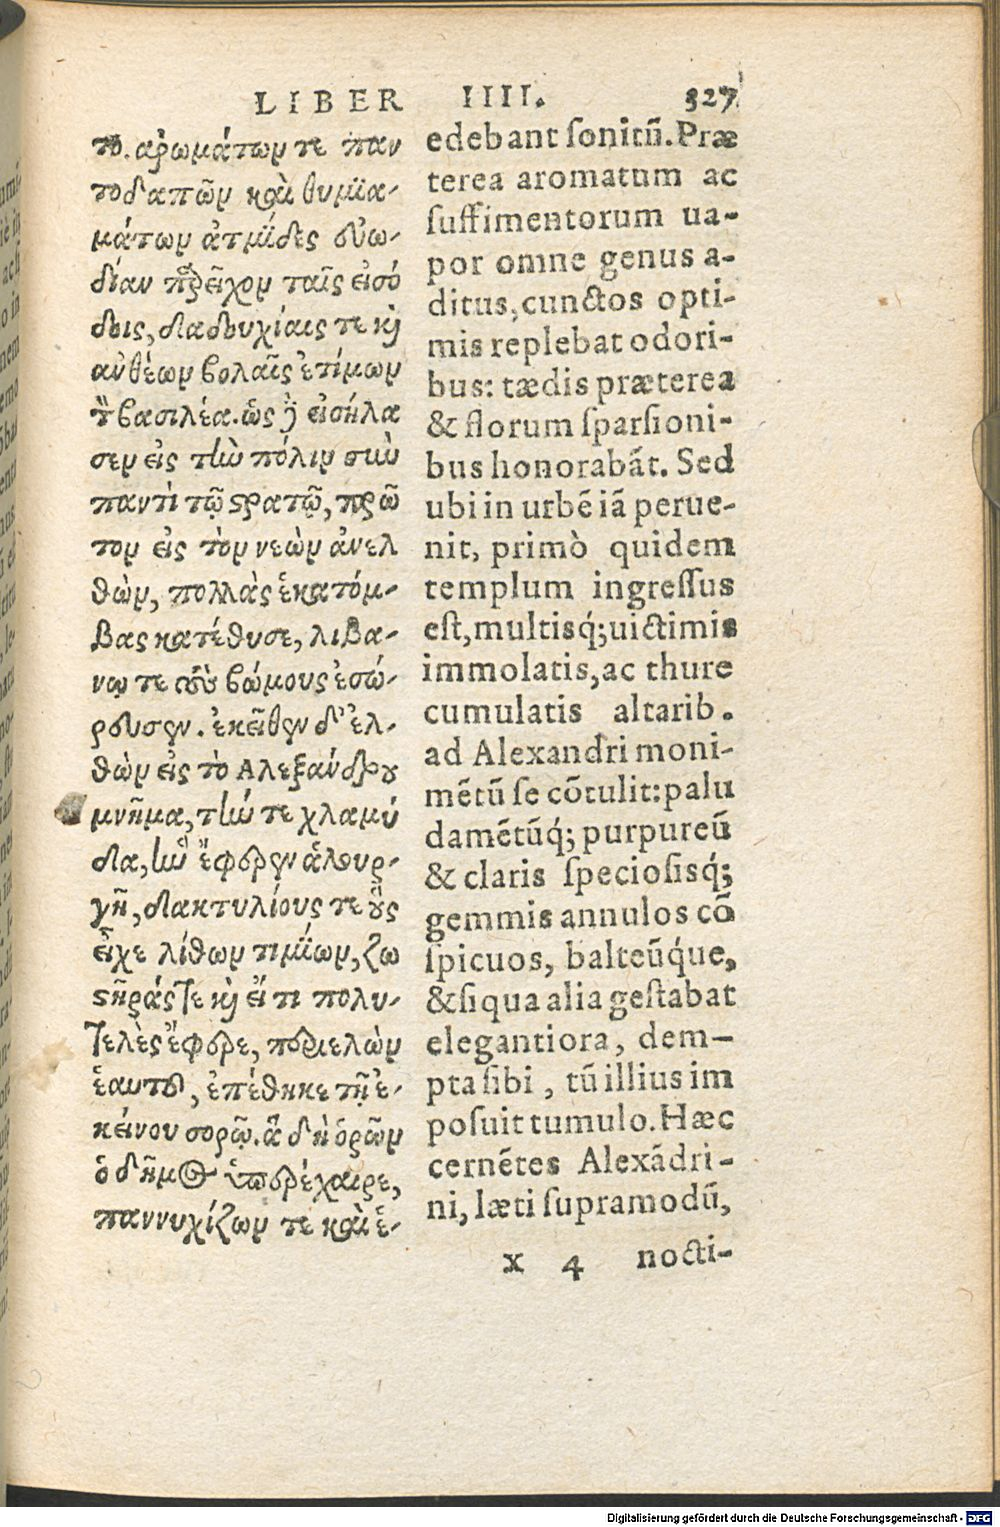 LIBER IIII. 327
το. ἀρωμάτων τε παν
τοδαπῶν καὶ θυμια-
μάτων ἀτμίδες εὐω-
δίαν παρεῖχον ταῖς εἰσό
δοις, δᾳδουχίαις τε κὶ
ἀνθέων βολαῖς ἐτίμων
τὸν βασιλέα. ὡς δὲ εἰσήλα
σεν εἰς τὴν πόλιν σὺν
παντὶ τῷ στρατῷ, πρῶ
τον εἰς τὸν νεὼν ἀνελ
θὼν, πολλὰς ἑκατόμ-
βας κατέθυσε, λιβα-
νῳ τε τοὺς βώμους ἐσώ-
ρευσεν. ἐκεῖθεν δ' ἐλ-
θὼν εἰς τὸ Ἀλεξάνδρου
μνῆμα, τήν τε χλαμύ
δα, ἣν ἔφερεν ἁλουρ-
γῆ, δακτυλίους τε οὓς
εἶχε λίθων τιμίων, ζω
στῆράς τε κὶ εἴ τι πολυ-
τελὲς ἔφερε, περιελὼν
ἑαυτοῦ, ἐπέθηκε τῇ ἐ-
κείνου σορῷ. ἃ δὴ ὁρῶν
ὁ δῆμος ὑπερέχαιρε,
παννυχίζων τε καὶ ἑ-
edebant ſonitũ. Præ
terea aromatum ac
ſuffimentorum ua-
por omne genus a-
ditus, cunctos opti-
mis replebat odori-
bus: tædis præterea
& florum ſparſioni-
bus honorabãt. Sed
ubi in urbẽ iã perue-
nit, primò quidem
templum ingreſſus
eſt, multisq́; uictimis
immolatis, ac thure
cumulatis altarib.
ad Alexandri moni-
mẽtũ ſe cõtulit: palu
damẽtũq́; purpureũ
& claris ſpecioſisq́;
gemmis annulos cõ
ſpicuos, balteũq́ue,
& ſiqua alia geſtabat
elegantiora, dem-
pta ſibi, tũ illius im
poſuit tumulo. Hæc
cernẽtes Alexãdri-
ni, læti ſupramodũ,
x 4 nocti-
Digitalisierung gefördert durch die Deutsche Forschungsgemeinschaft - DFG